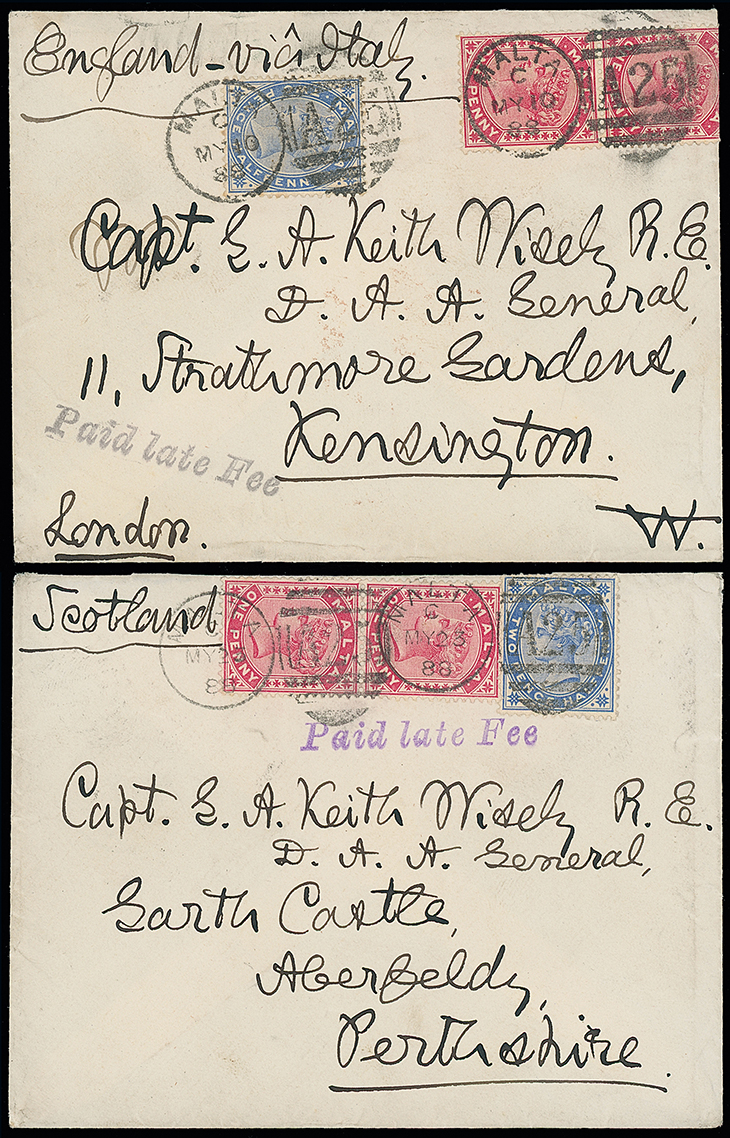 England - viâ Italy.
MALTA
C
MY 19
88
A 25
MALTA
C
MY 19
88
A25
PENCE HALFPENNY
PENNY
Capt. G. A. Keith Wisely R.E.
D. A. A. General,
11, Strathmore Gardens,
Kensington.
Paid late Fee
London.
W.
Scotland
MALTA
C
MY 23
88
ONE PENNY MALTA
PENNY MALTA
MALTA TWO PENCE HALFPE
A25
Paid late Fee
Capt. G. A. Keith Wisely R.E.
D. A. A. General,
Garth Castle,
Aberfeldy,
Perthshire.